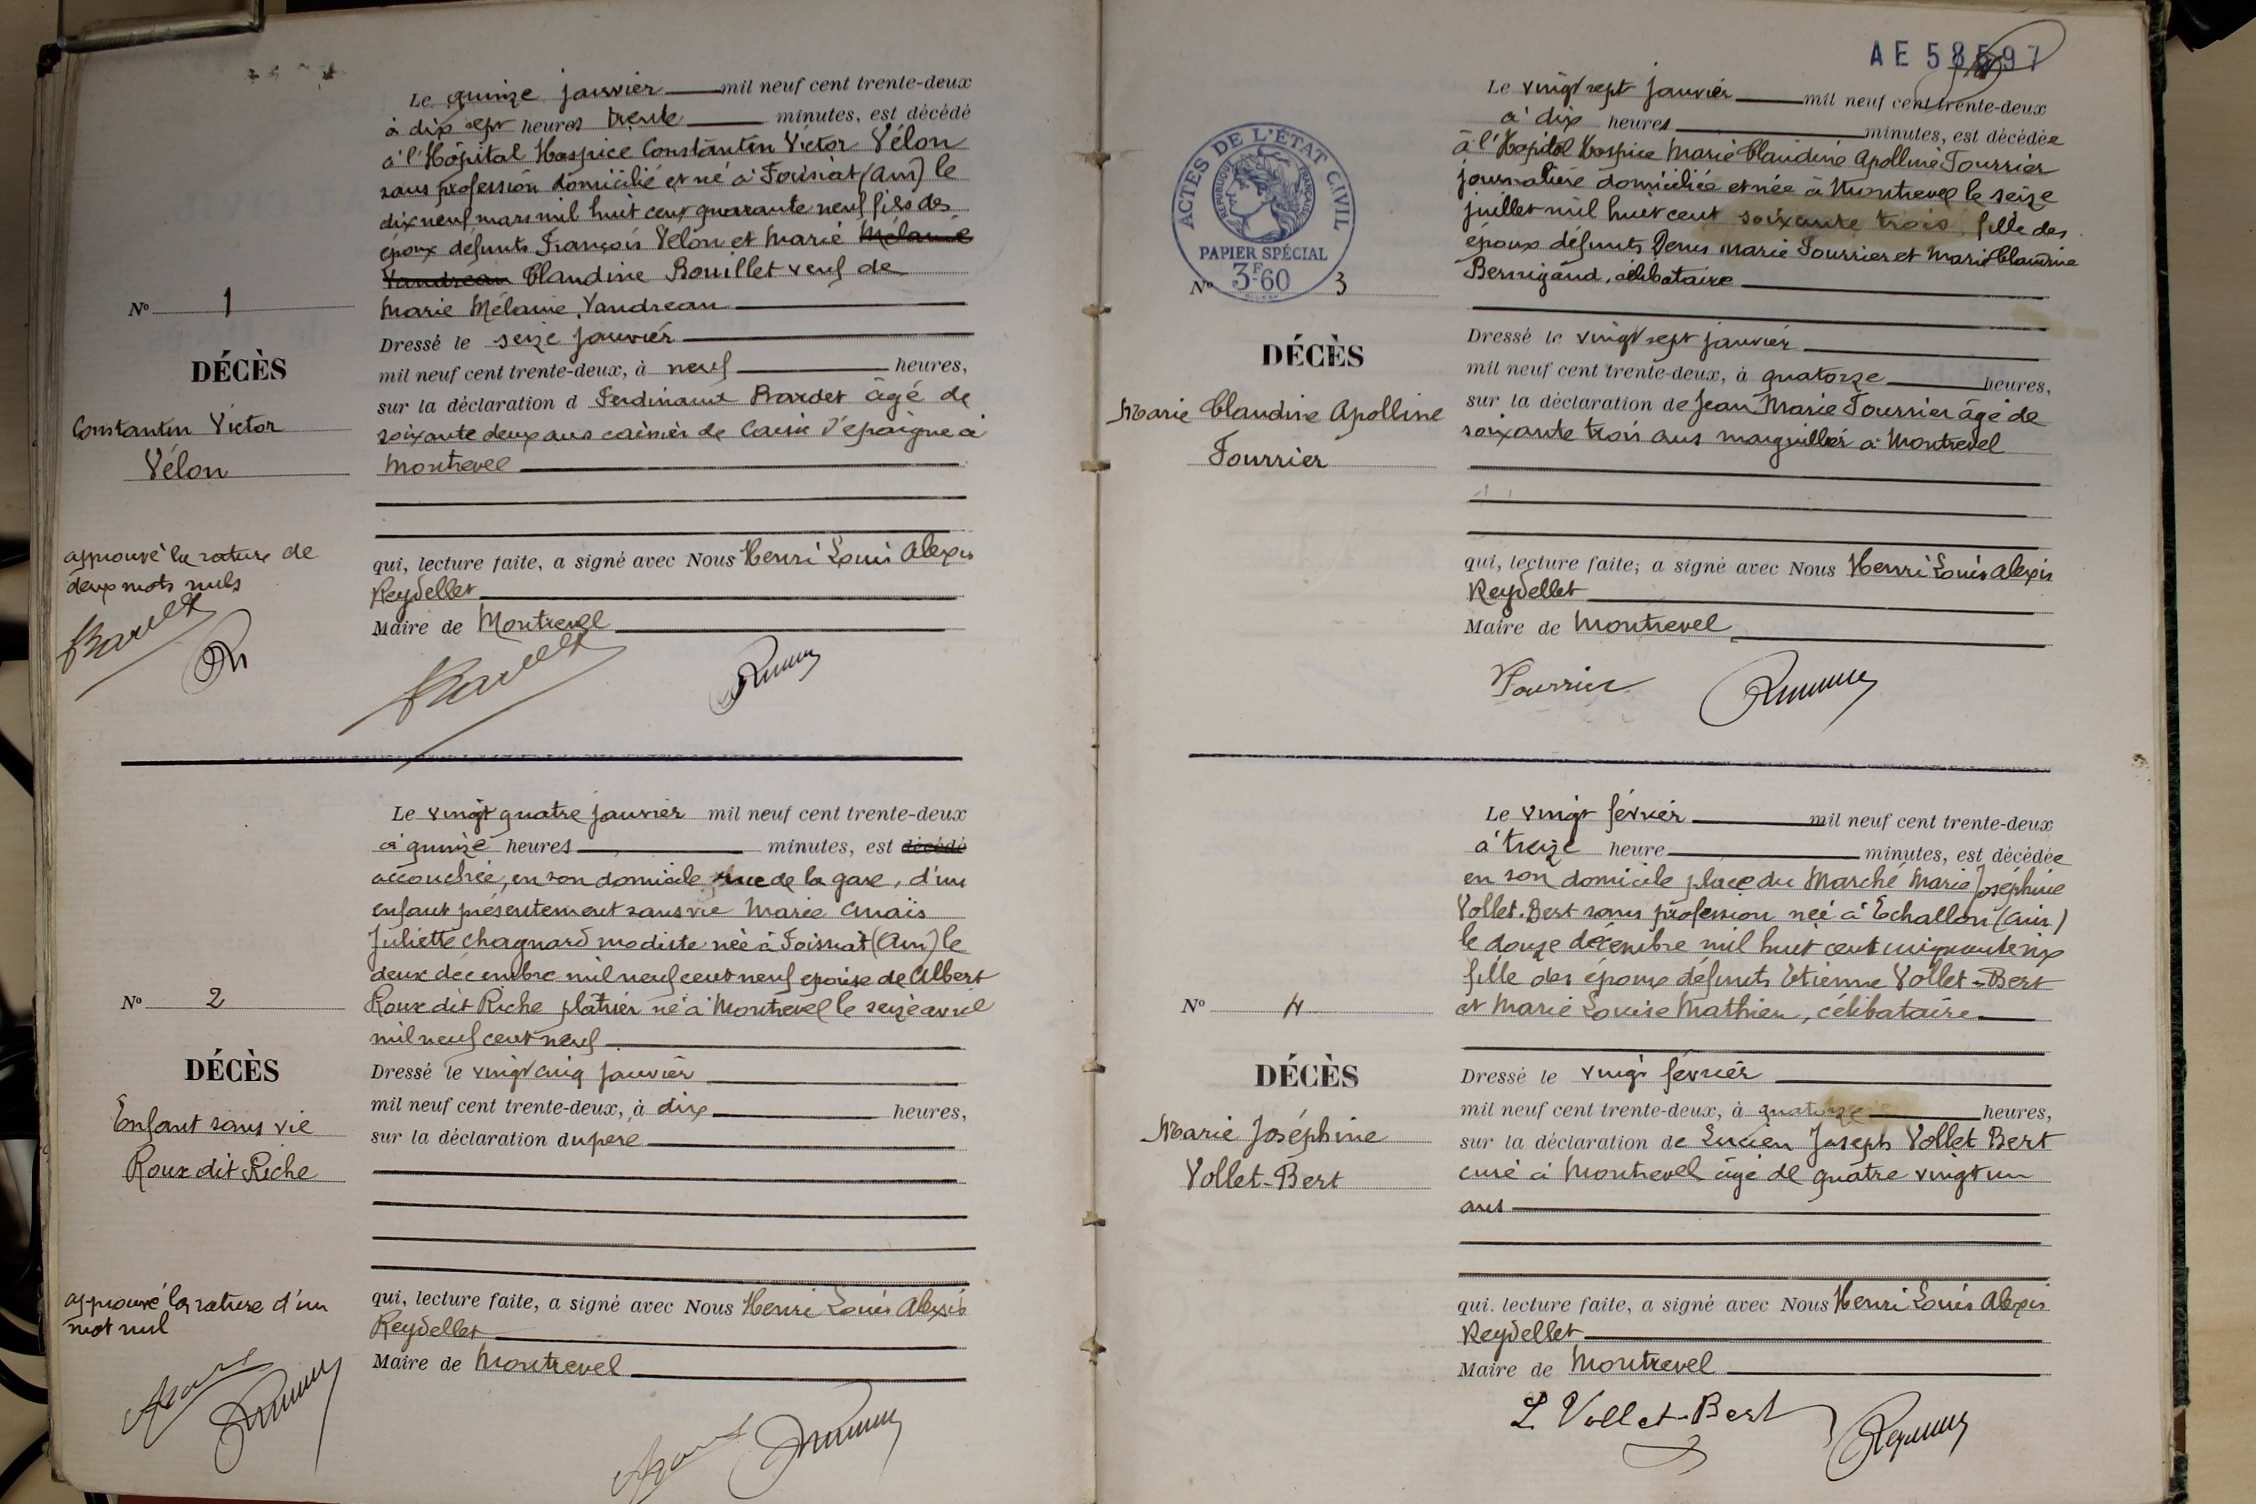 Le quinze janvier mil neuf cent trente-deux
à dix sept heures trente minutes, est décédé
à l'Hôpital Hospice Constantin Victor Vélon
sans profession domicilié et né à Foissiat (Ain) le
dix neuf mars mil huit cent quarante neuf fils des
époux défunts François Vélon et Marie Mélanie
Vandreau Claudine Bouillet veuf de
Marie Mélanie Vandreau
Nº 1
Dressé le seize janvier
DÉCÈS
mil neuf cent trente-deux, à neuf heures,
sur la déclaration d Ferdinand Bardet âgé de
Constantin Victor
soixante deux ans caissier de Caisse d'épargne à
Vélon
Montrevel
approuvé la rature de
deux mots nuls
qui, lecture faite, a signé avec Nous Henri Louis Alexis
Reydellet
Maire de Montrevel
Le vingt quatre janvier mil neuf cent trente-deux
à quinze heures minutes, est décédé
accouchée, en son domicile rue de la gare, d'un
enfant présentement sans vie Marie Anaïs
Juliette Chagnard modiste née à Foissiat (Ain) le
deux décembre mil neuf cent neuf épouse de Albert
Nº 2
Roux dit Riche plâtrier né à Montrevel le seize avril
mil neuf cent neuf
DÉCÈS
Dressé le vingt cinq janvier
mil neuf cent trente-deux, à dix heures,
Enfant sans vie
sur la déclaration du père
Roux dit Riche
approuvé la rature d'un
mot nul
qui, lecture faite, a signé avec Nous Henri Louis Alexis
Reydellet
Maire de Montrevel
AE 58597
ACTES DE L'ÉTAT CIVIL
RÉPUBLIQUE FRANÇAISE
PAPIER SPÉCIAL
3F.60
Le vingt sept janvier mil neuf cent trente-deux
à dix heures minutes, est décédée
à l'Hôpital Hospice Marie Claudine Apolline Fourrier
journalière domiciliée et née à Montrevel le seize
juillet mil huit cent soixante trois fille des
époux défunts Denis Marie Fourrier et Marie Claudine
Bernigaud, célibataire
Nº 3
DÉCÈS
Dressé le vingt sept janvier
mil neuf cent trente-deux, à quatorze heures,
Marie Claudine Apolline
sur la déclaration de Jean Marie Fourrier âgé de
soixante trois ans marguillier à Montrevel
Fourrier
qui, lecture faite, a signé avec Nous Henri Louis Alexis
Reydellet
Maire de Montrevel
Fourrier
Le vingt février mil neuf cent trente-deux
à treize heure minutes, est décédée
en son domicile place du Marché Marie Joséphine
Vollet-Bert sans profession née à Echallon (Ain)
le douze décembre mil huit cent cinquante six
fille des époux défunts Etienne Vollet-Bert
et Marie Louise Mathieu, célibataire
Nº 4
DÉCÈS
Dressé le vingt février
mil neuf cent trente-deux, à quatorze heures,
Marie Joséphine
sur la déclaration de Lucien Joseph Vollet Bert
Vollet-Bert
curé à Montrevel âgé de quatre vingt un
ans
qui, lecture faite, a signé avec Nous Henri Louis Alexis
Reydellet
Maire de Montrevel
L Vollet-Bert